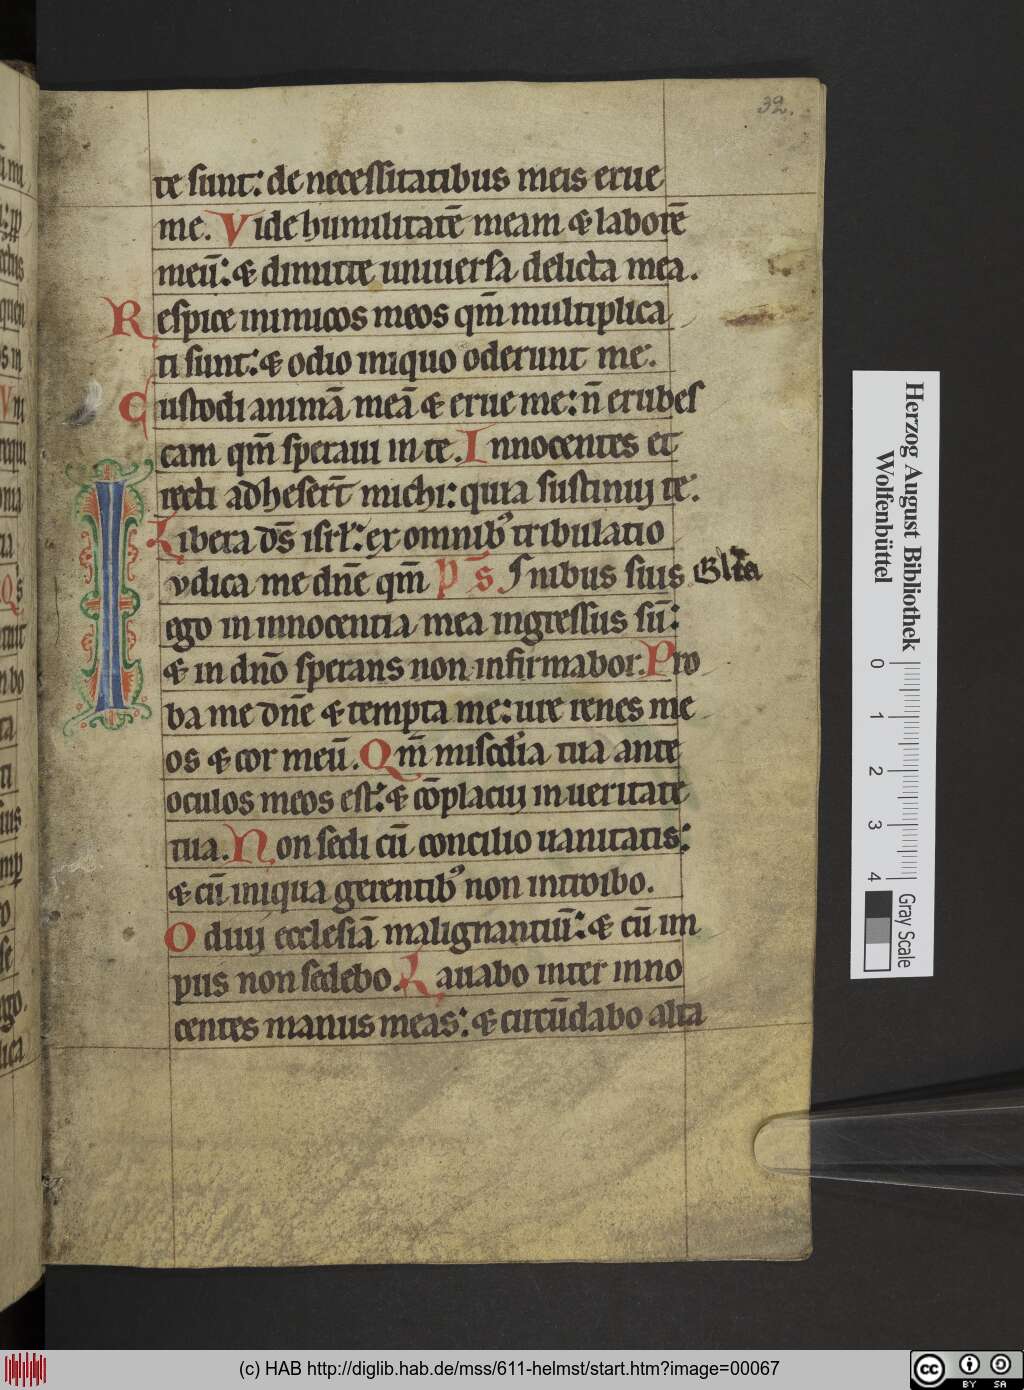 32.
te sunt: de necessitatibus meis erue
me. Vide humilitatē meam & laborē
meū: & dimitte uniuersa delicta mea.
Respice inimicos meos qm̄ multiplica
ti sunt: & odio iniquo oderunt me.
Custodi animā meā & erue me: n̄ erubes
cam qm̄ speraui in te. Innocentes et
recti adhesert̄ michi: quia sustinuj te.
Libera ds̄ isrl̄: ex omnibꝰ tribulatio
Iudica me dn̄e qm̄ Ps̄ nibus suis Glīa
ego in innocentia mea ingressus sū:
& in dn̄o sperans non infirmabor. Pro
ba me dn̄e & tempta me: ure renes me
os & cor meū. Qm̄ misc̄dia tua ante
oculos meos est: & cōplacuj in ueritate
tua. Non sedi cū concilio uanitatis:
& cū iniqua gerentibꝰ non introibo.
Odiuj ecclesiā malignantiū: & cū im
piis non sedebo. Lauabo inter inno
centes manus meas: & circūdabo alta
Herzog August Bibliothek
Wolfenbüttel
0 1 2 3 4
Gray Scale
(c) HAB http://diglib.hab.de/mss/611-helmst/start.htm?image=00067
cc BY SA